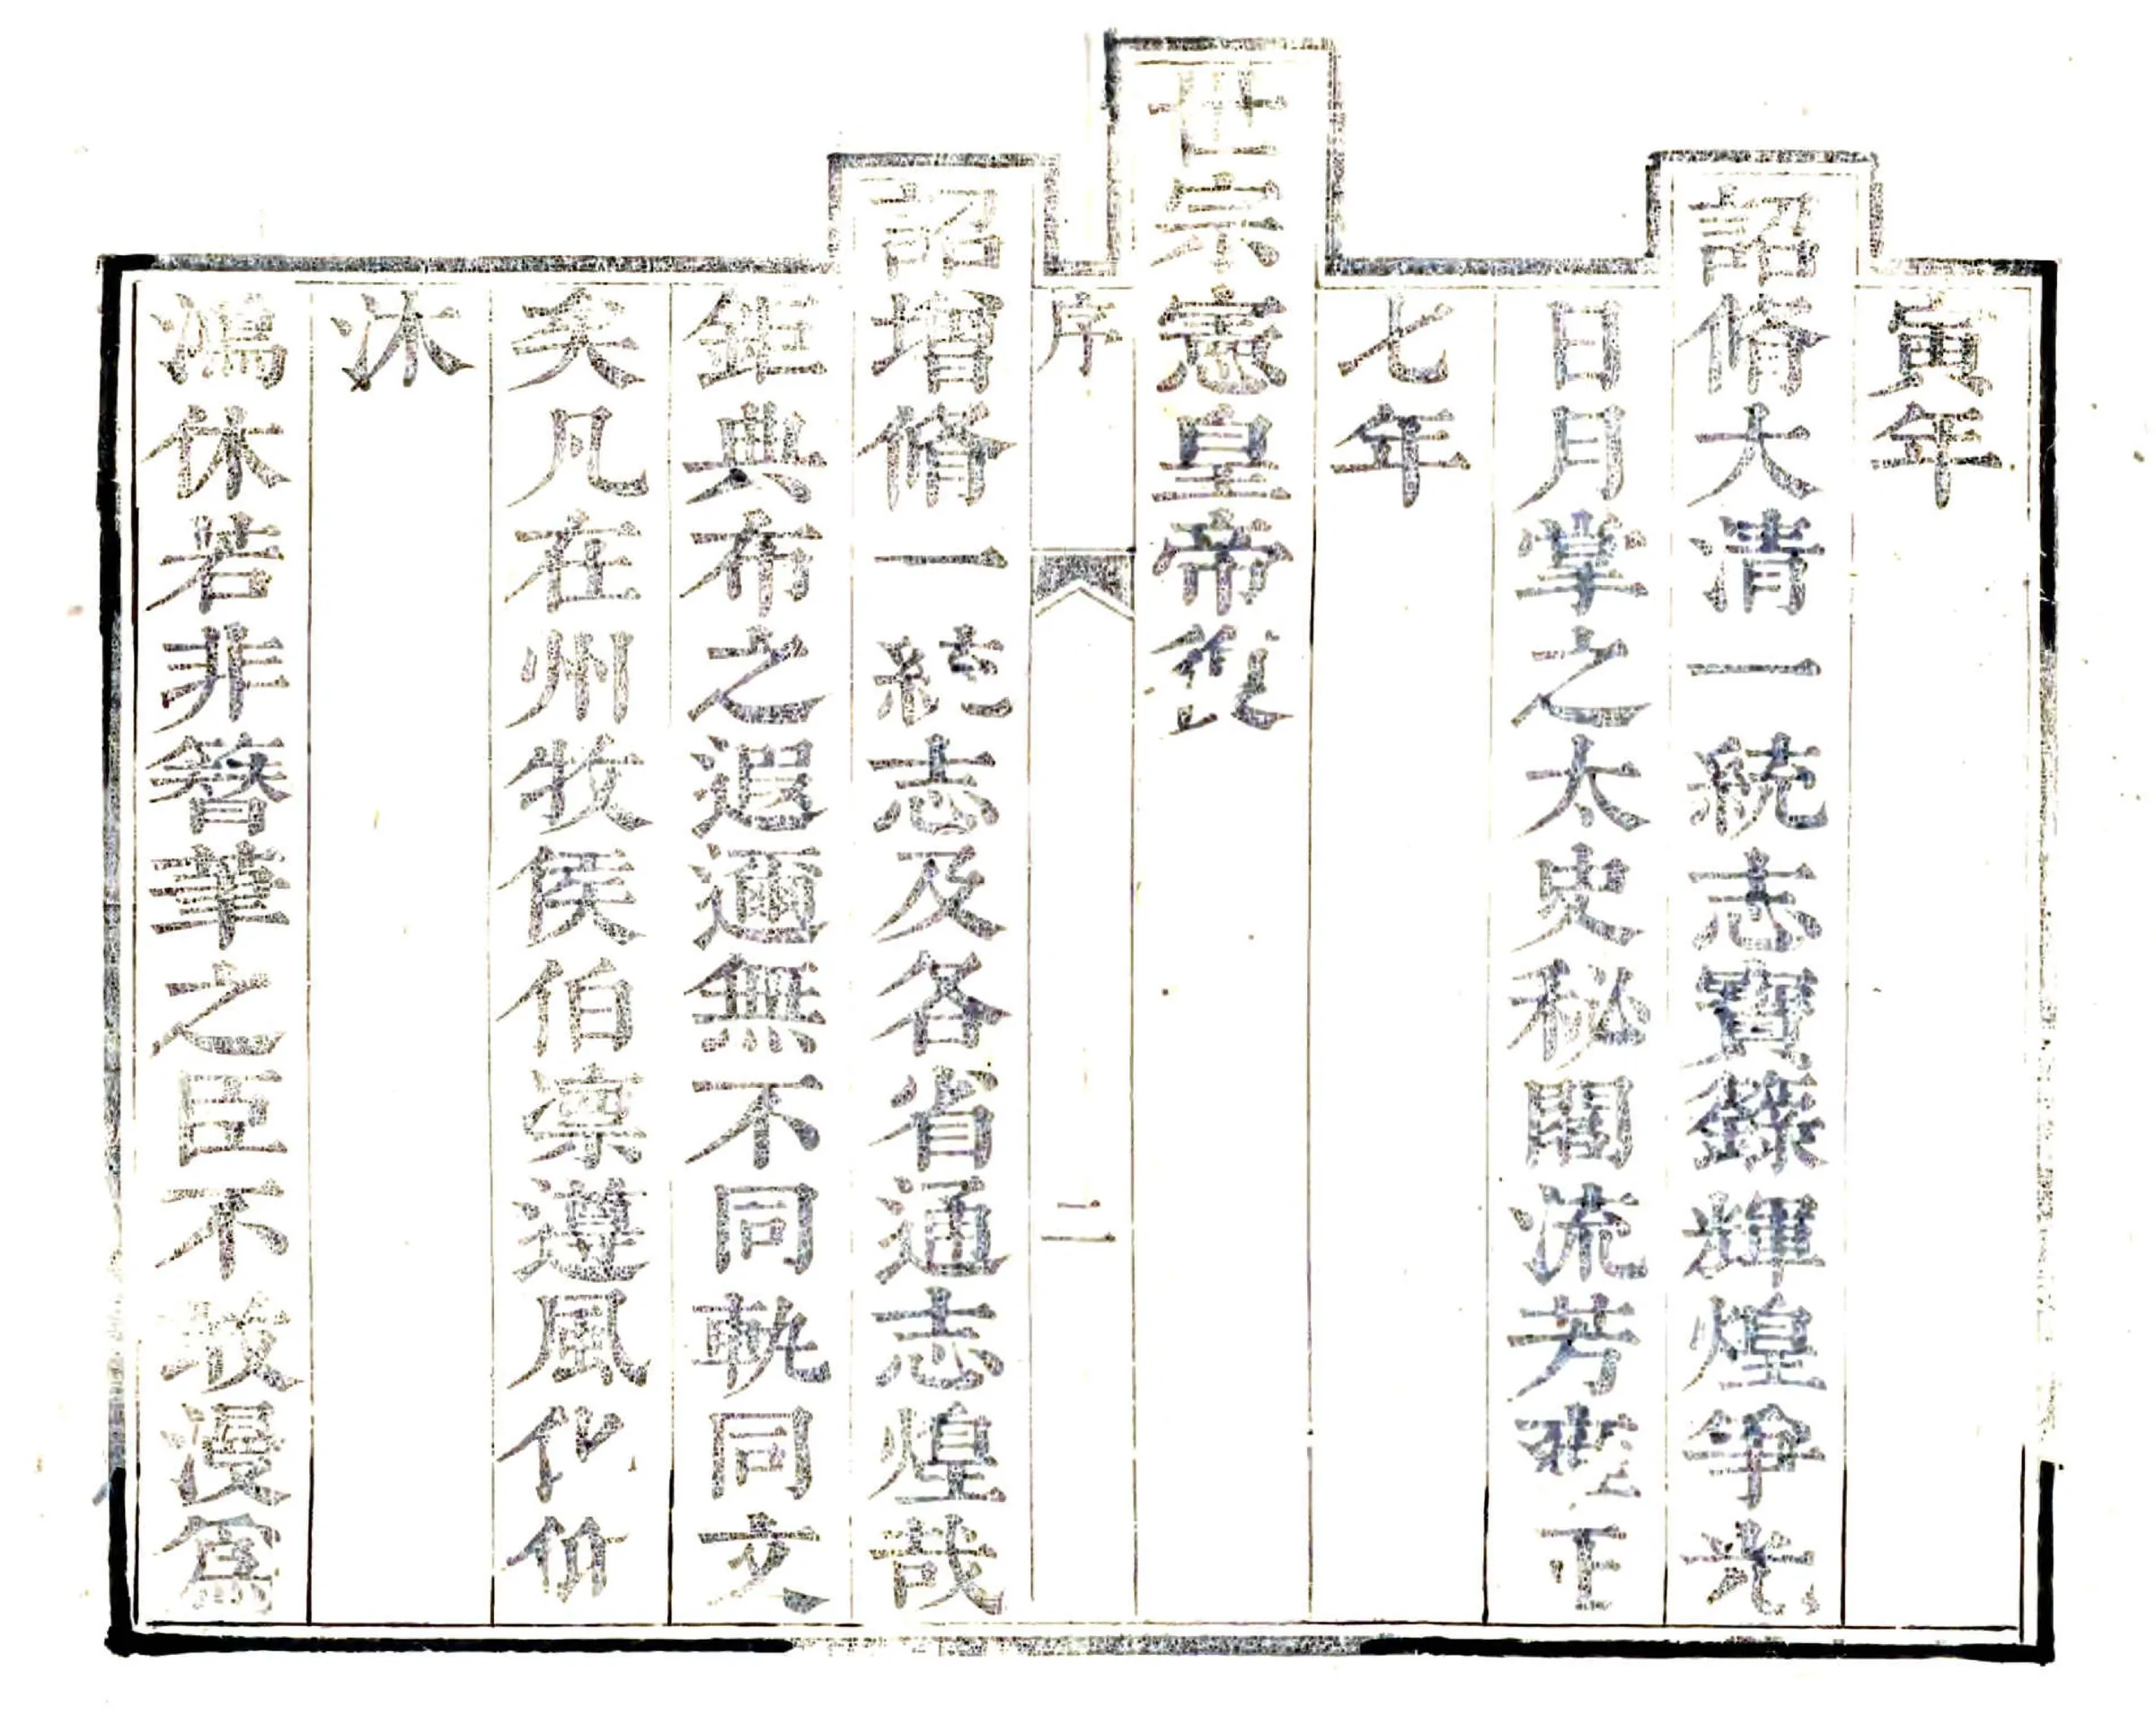 寅年
詔脩大清一統志寶籙輝煌爭光
日月掌之太史秘閣流芳雍正
七年
世宗憲皇帝
序 二
詔增脩一統志及各省通志煌哉
鉅典布之遐邇無不同軌同文
矣凡在州牧侯伯凛遵風化仰
沐
鴻休若非簪筆之臣不敢漫爲